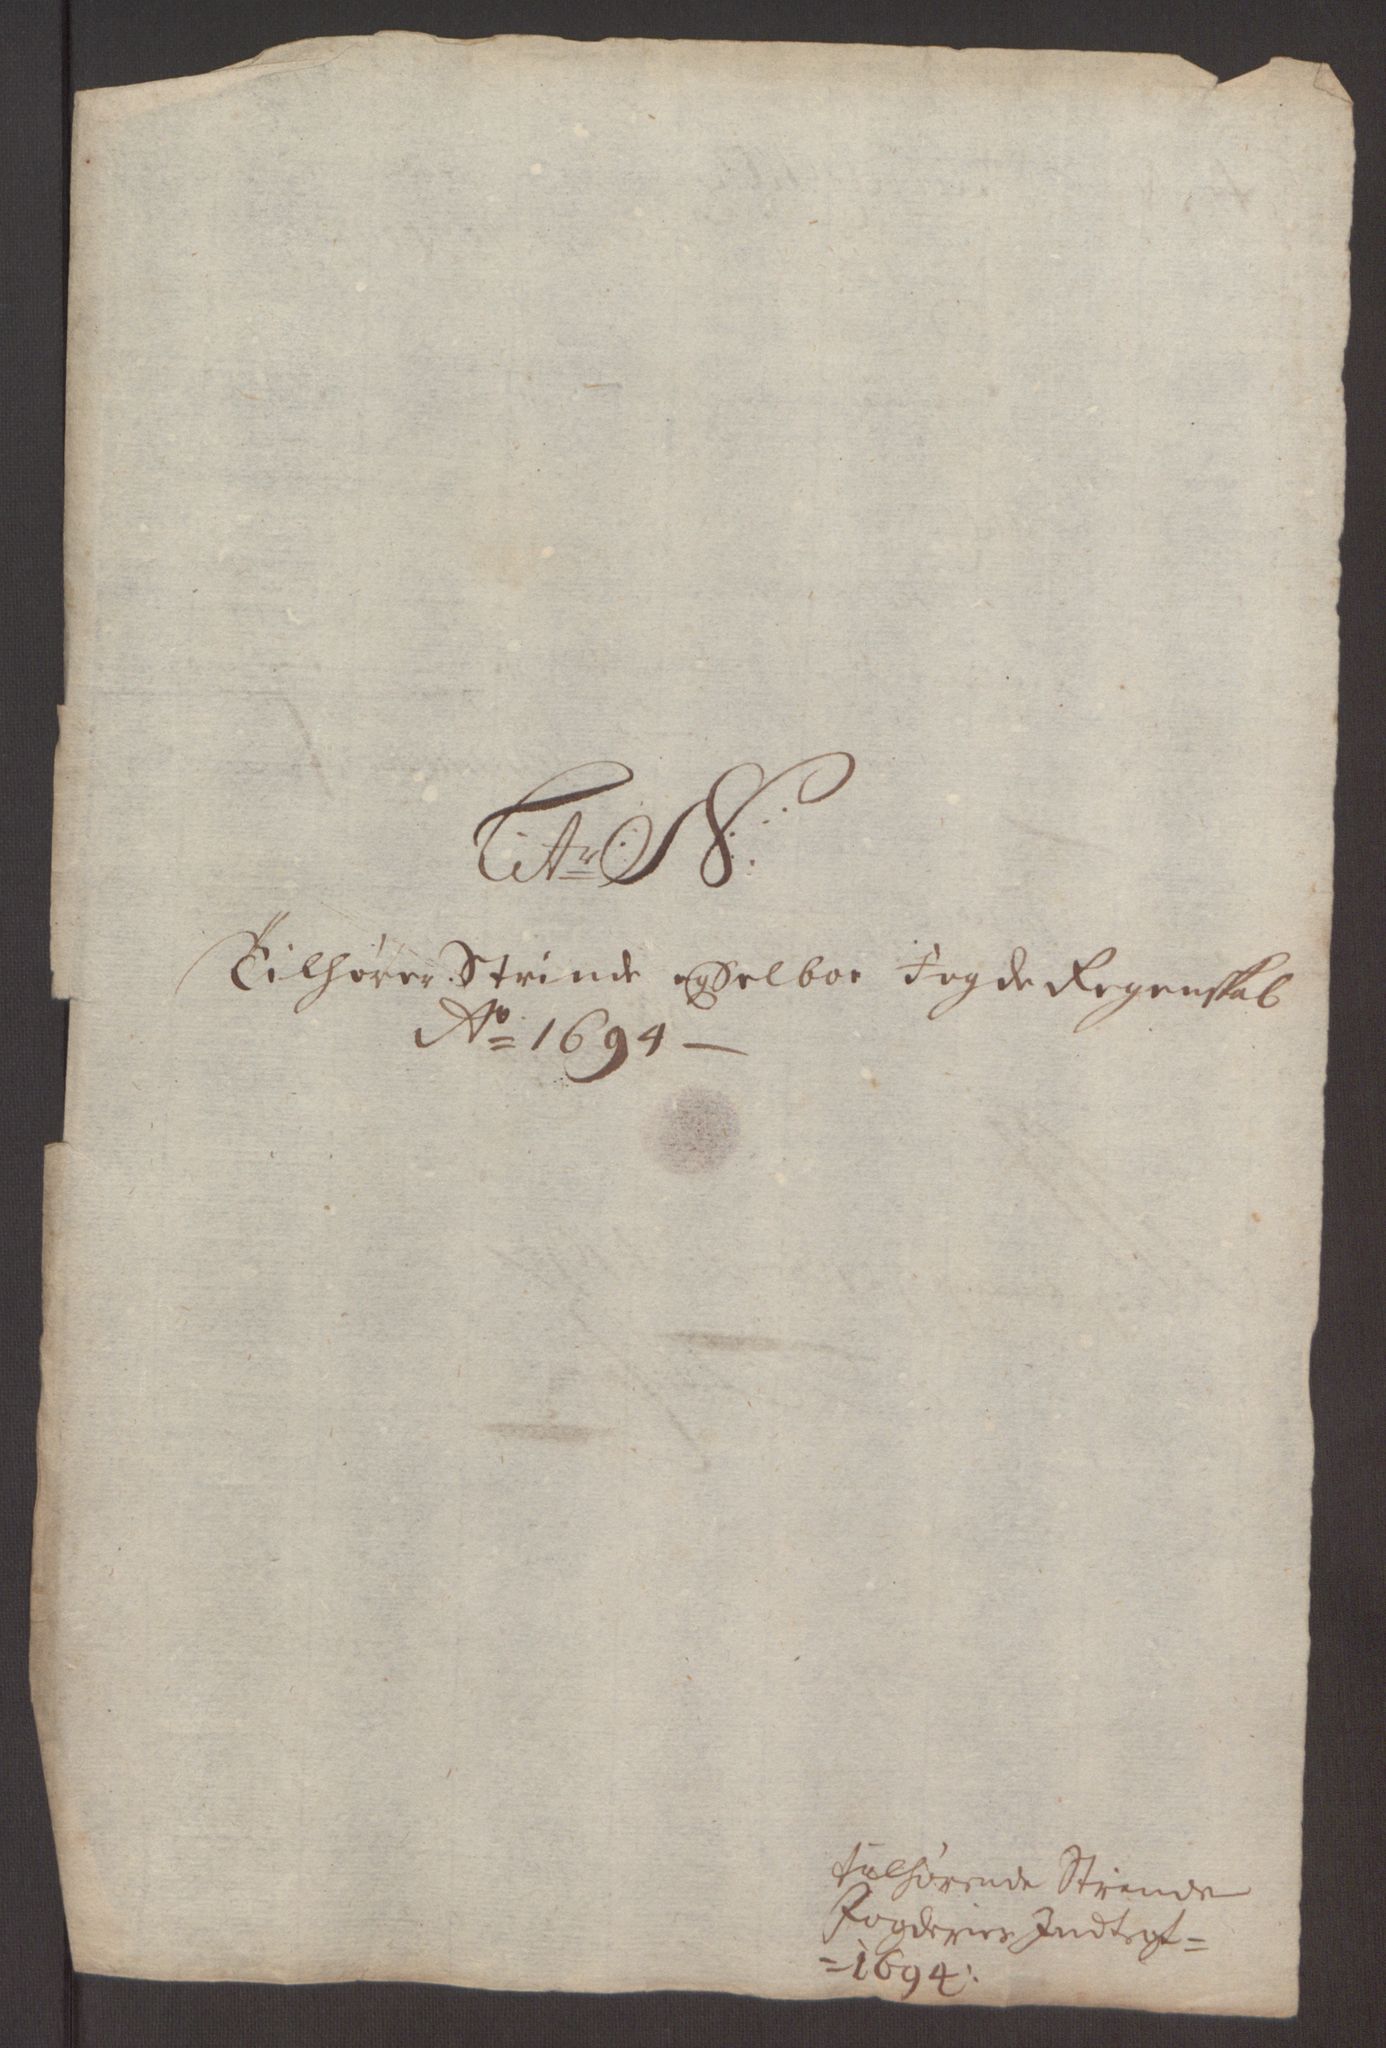 Litr: N:
Tilhører Strinde og Selboe Fogde Regenskab
Ao 1694 —
tilhørende Strinde
Fogderies Indtegt =
= 1694: